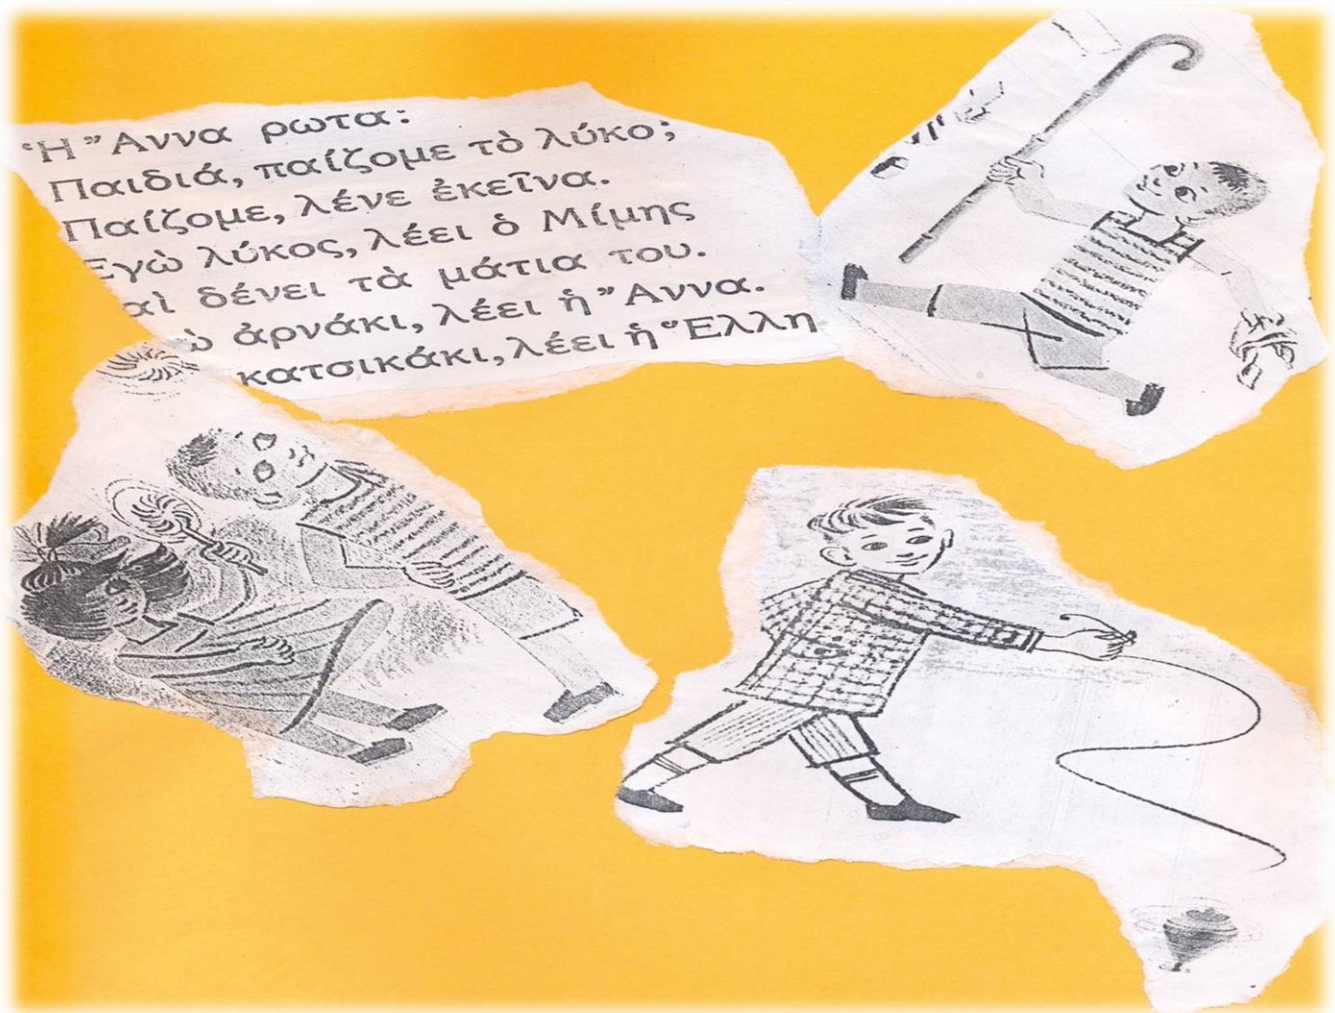 Ἡ Ἄννα ρωτα:
Παιδιά, παίζομε τὸ λύκο;
Παίζομε, λένε ἐκεῖνα.
Ἐγὼ λύκος, λέει ὁ Μίμης
αὶ δένει τὰ μάτια του.
ὼ ἀρνάκι, λέει ἡ Ἄννα.
κατσικάκι, λέει ἡ Ἕλλη